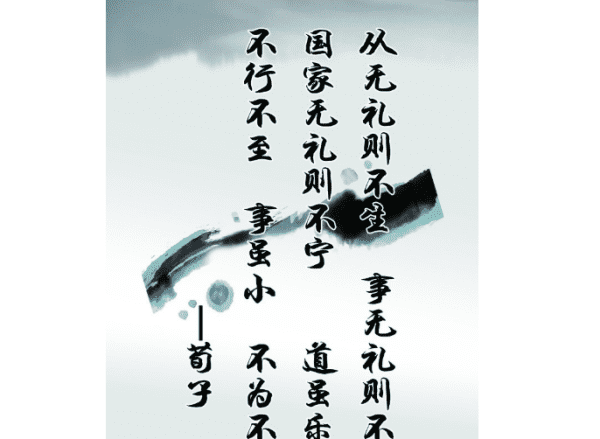 从无礼则不生 事无礼则不
国家无礼则不宁 道虽乐
不行不至 事虽小 不为不
—荀子